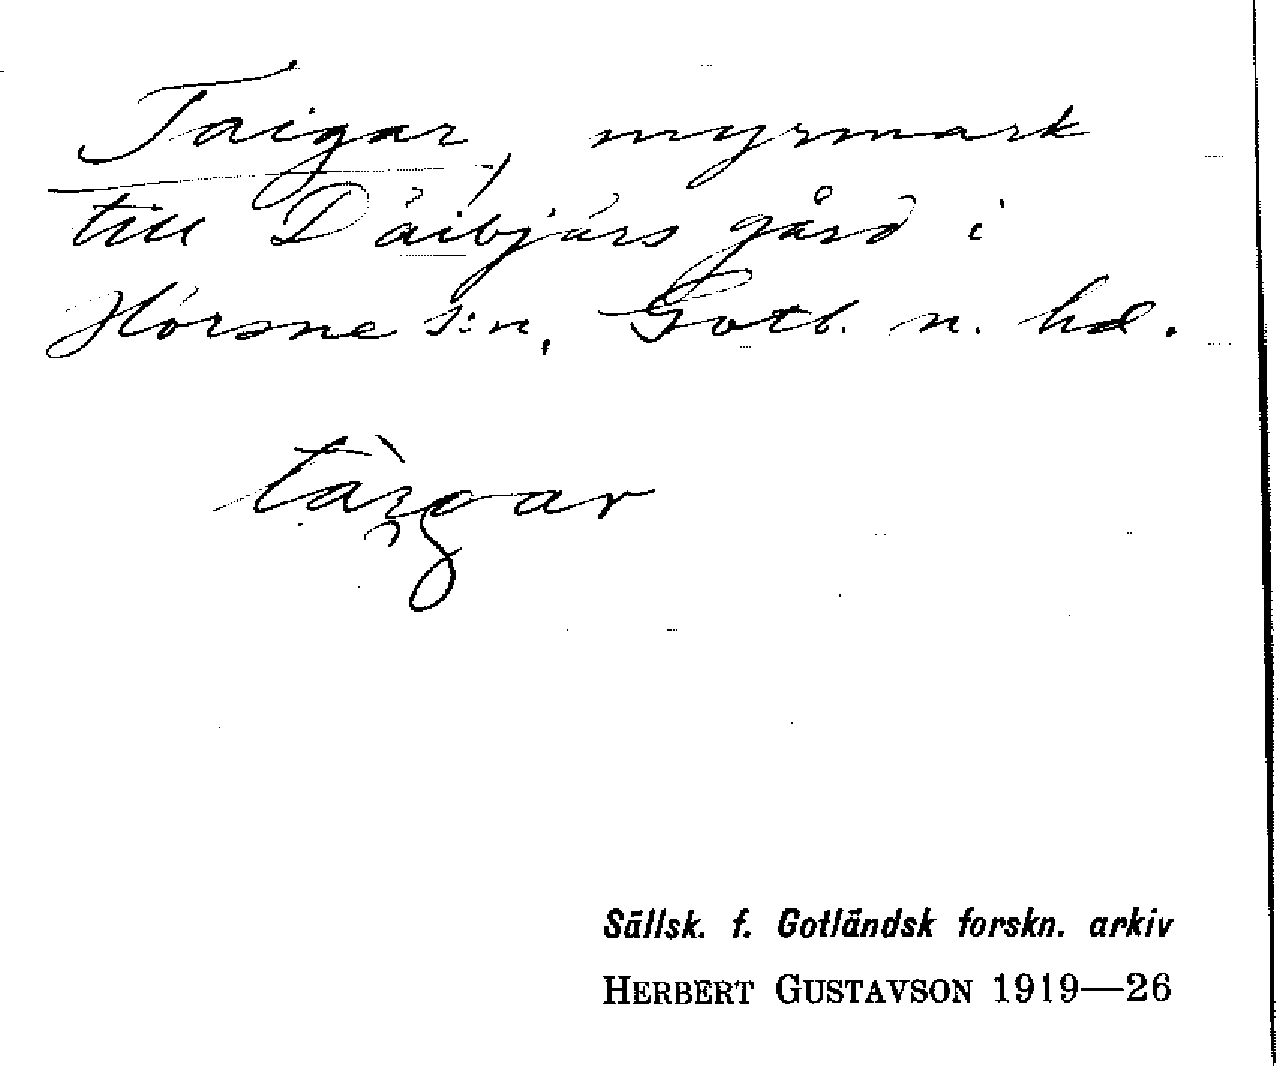 Taigar, myrmark
till Dåibjärs gård i
Hörsne s:n, Gotl. n. hd.
Sällsk. f. Gotländsk forskn. arkiv
HERBERT GUSTAVSON 1919—26